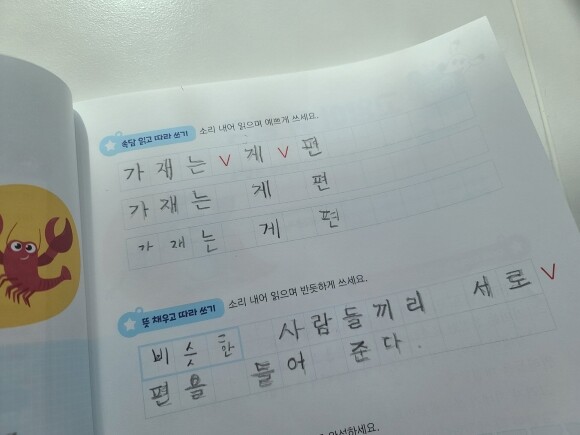 속담 읽고 따라 쓰기 소리 내어 읽으며 예쁘게 쓰세요.
가재는 V 게 V 편
가재는 게 편
가재는 게 편
뜻 채우고 따라 쓰기 소리 내어 읽으며 반듯하게 쓰세요.
비슷한 사람들끼리 서로 V
편을 들어 준다.
완성하세요.